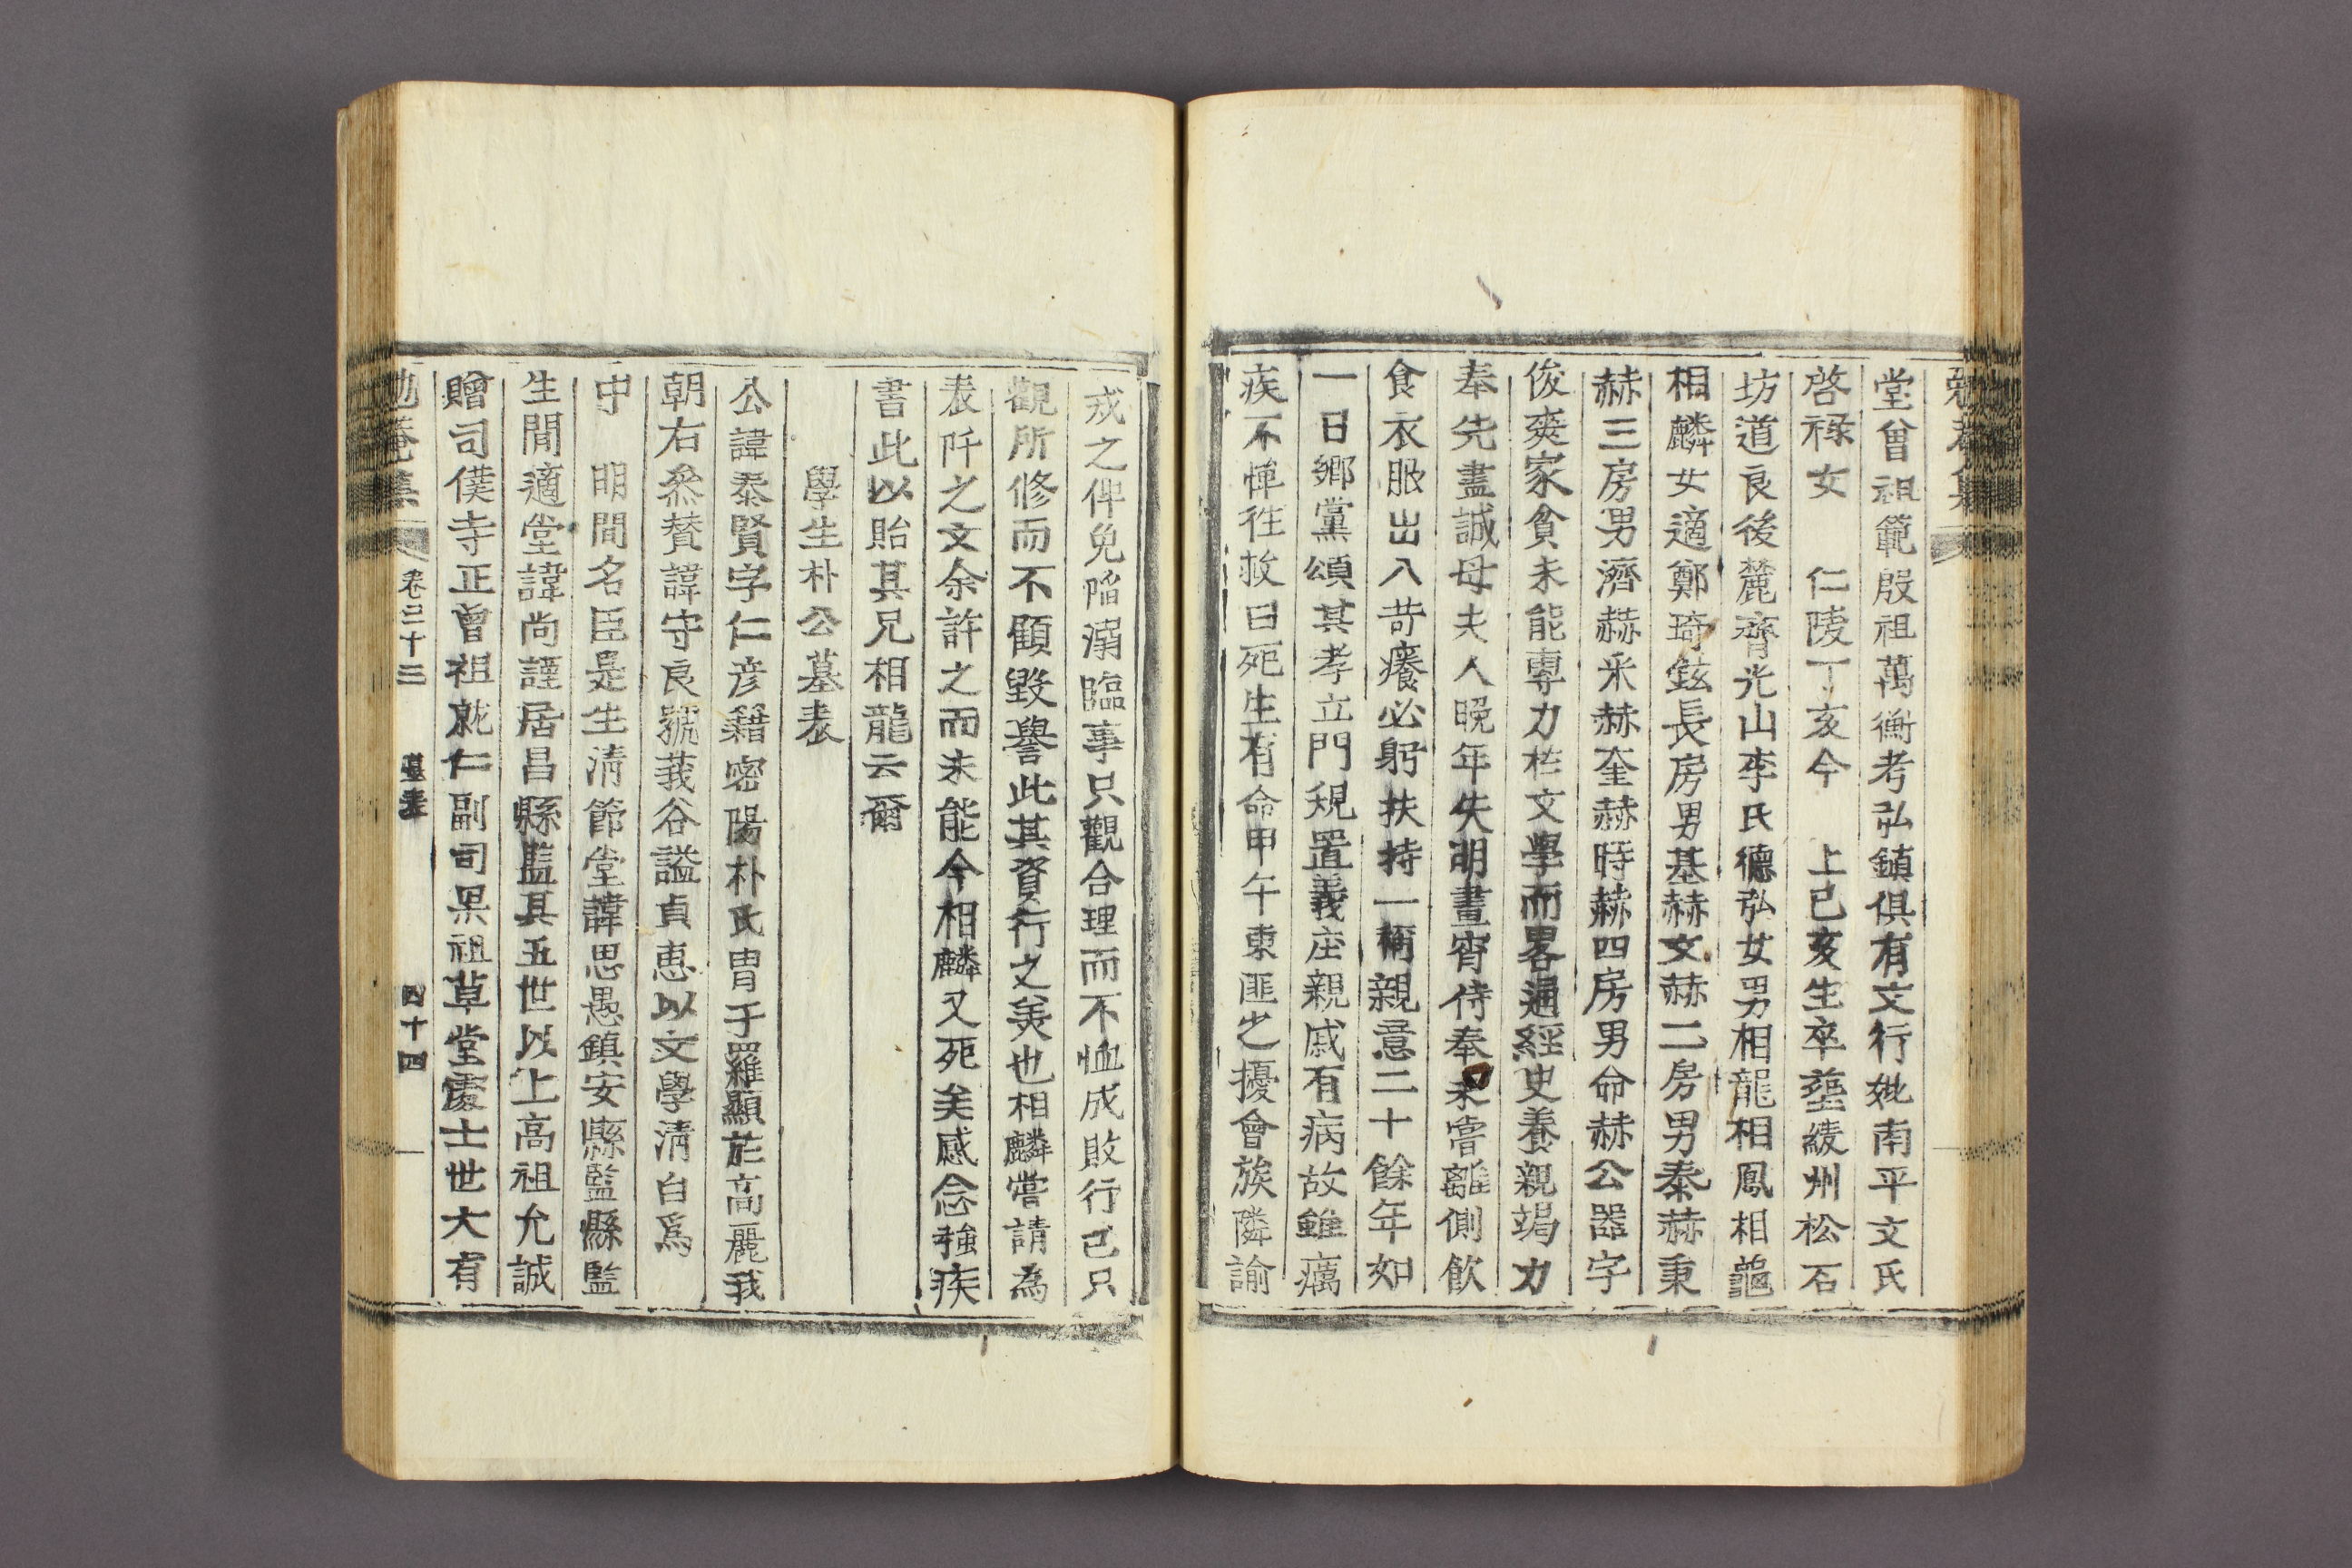 堂曾祖範殷祖萬衡考弘鎮俱有文行妣南平文氏
啓祿女 仁陵丁亥今 上己亥生卒塟綾州松石
坊道良後麓齊光山李氏德弘女男相龍相鳳相龜
相麟女適鄭琦鉉長房男基赫文赫二房男秦赫秉
赫三房男濟赫采赫奎赫時赫四房男命赫公器字
俊爽家貧未能專力於文學而畧通經史養親竭力
奉先盡誠母夫人晩年失明晝宵侍奉未嘗離側飮
食衣服出入苛癢必躬扶持一稱親意二十餘年如
一日鄉黨頌其孝立門規置義庄親戚有病故雖癘
疾不憚徃救曰死生有命甲午東匪之擾會族隣諭
戒之俾免陷溺臨事只觀合理而不恤成敗行己只
觀所修而不顧毀譽此其資行之美也相麟嘗請為
表阡之文余許之而未能今相麟又死矣感念強疾
書此以貽其兄相龍云爾
學生朴公墓表
公諱泰賢字仁彦籍密陽朴氏胄于羅顯於高麗我
朝右叅賛諱守良號莪谷謚貞惠以文學清白爲
中 明間名臣是生清節堂諱思愚鎮安縣監縣監
生閒適堂諱尚諲居昌縣監其五世以上高祖允誠
贈司僕寺正曾祖就仁副司果祖草堂慶士世大有
卷三十三 墓表 四十四